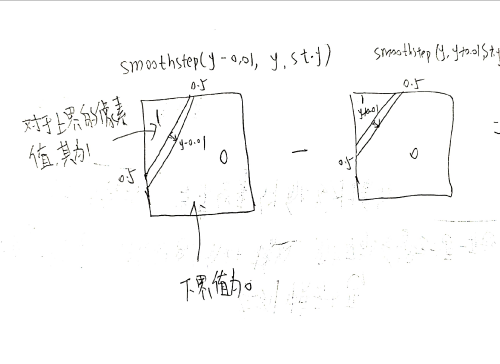 smoothstep(y-0.01, y, st.y)
smoothstep(y, y+0.01, st.y
对于上界的像素
值,其为1
0.5
1
y-0.01
0
0.5
下界,值为0
-
0.5
1
y+0.01
0
0.5
=